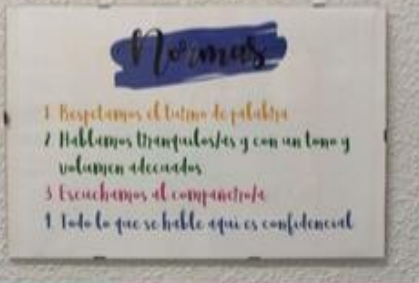 Normas
1 Respetamos el turno de palabra
2 Hablamos tranquilos/as y con un tono y
volumen adecuados
3 Escuchamos al compañero/a
4 Todo lo que se hable aquí es confidencial